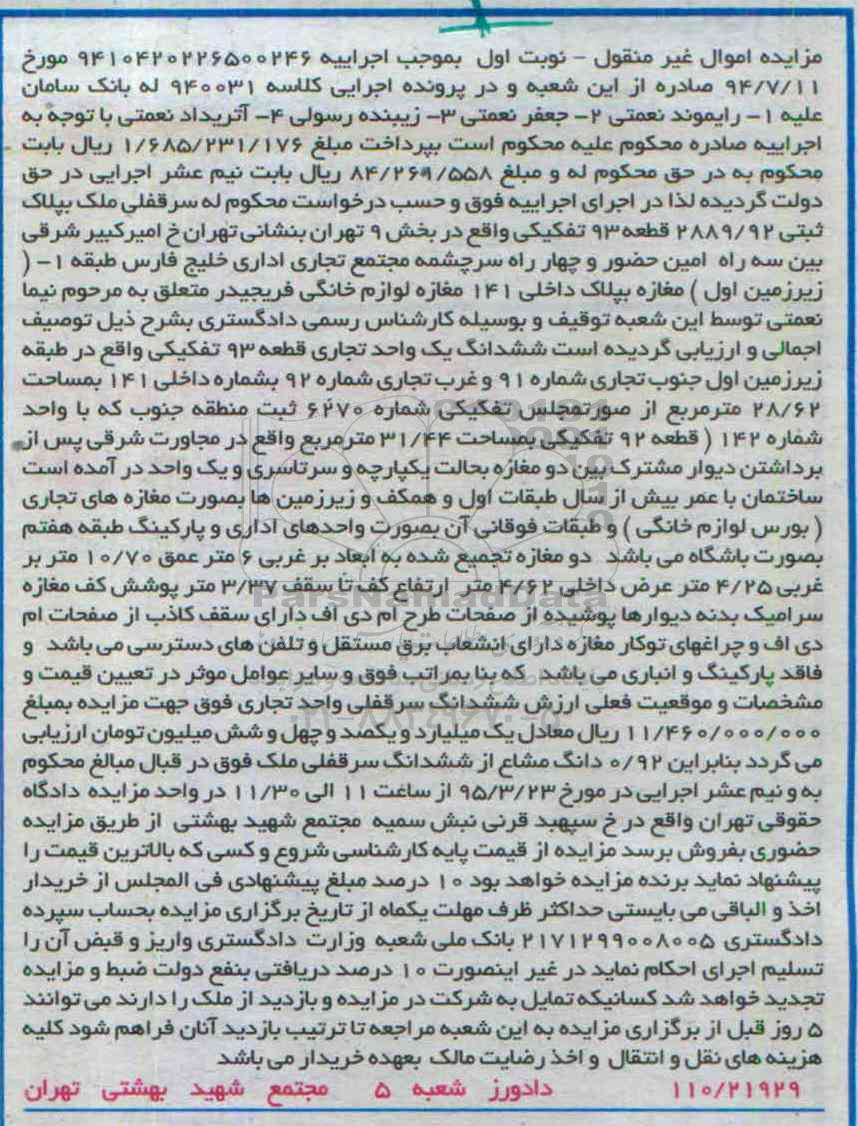 مزایده اموال غیر منقول - نوبت اول بموجب اجراییه ۹۴۱۰۴۲۰۲۲۶۵۰۰۲۴۶ مورخ
۹۴/۷/۱۱ صادره از این شعبه و در پرونده اجرایی کلاسه ۹۴۰۰۳۱ له بانک سامان
علیه ۱- رایموند نعمتی ۲- جعفر نعمتی ۳- زیبنده رسولی ۴- آتریداد نعمتی با توجه به
اجراییه صادره محکوم علیه محکوم است بپرداخت مبلغ ۱/۶۸۵/۲۳۱/۱۷۶ ریال بابت
محکوم به در حق محکوم له و مبلغ ۸۴/۲۶۱/۵۵۸ ریال بابت نیم عشر اجرایی در حق
دولت گردیده لذا در اجرای اجراییه فوق و حسب درخواست محکوم له سرقفلی ملک بپلاک
ثبتی ۲۸۸۹/۹۲ قطعه ۹۳ تفکیکی واقع در بخش ۹ تهران بنشانی تهران خ امیرکبیر شرقی
بین سه راه امین حضور و چهار راه سرچشمه مجتمع تجاری اداری خلیج فارس طبقه ۱- (
زیرزمین اول ) مغازه بپلاک داخلی ۱۴۱ مغازه لوازم خانگی فریجیدر متعلق به مرحوم نیما
نعمتی توسط این شعبه توقیف و بوسیله کارشناس رسمی دادگستری بشرح ذیل توصیف
اجمالی و ارزیابی گردیده است ششدانگ یک واحد تجاری قطعه ۹۳ تفکیکی واقع در طبقه
زیرزمین اول جنوب تجاری شماره ۹۱ و غرب تجاری شماره ۹۲ بشماره داخلی ۱۴۱ بمساحت
۲۸/۶۲ مترمربع از صورتمجلس تفکیکی شماره ۶۲۷۰ ثبت منطقه جنوب که با واحد
شماره ۱۴۲ ( قطعه ۹۲ تفکیکی بمساحت ۳۱/۴۴ مترمربع واقع در مجاورت شرقی پس از
برداشتن دیوار مشترک بین دو مغازه بحالت یکپارچه و سرتاسری و یک واحد در آمده است
ساختمان با عمر بیش از سال طبقات اول و همکف و زیرزمین ها بصورت مغازه های تجاری
( بورس لوازم خانگی ) و طبقات فوقانی آن بصورت واحدهای اداری و پارکینگ طبقه هفتم
بصورت باشگاه می باشد دو مغازه تجمیع شده به ابعاد بر غربی ۶ متر عمق ۱۰/۷۰ متر بر
غربی ۴/۲۵ متر عرض داخلی ۴/۶۲ متر ارتفاع کف تا سقف ۳/۳۷ متر پوشش کف مغازه
سرامیک بدنه دیوارها پوشیده از صفحات طرح ام دی اف دارای سقف کاذب از صفحات ام
دی اف و چراغهای توکار مغازه دارای انشعاب برق مستقل و تلفن های دسترسی می باشد و
فاقد پارکینگ و انباری می باشد که بنا بمراتب فوق و سایر عوامل موثر در تعیین قیمت و
مشخصات و موقعیت فعلی ارزش ششدانگ سرقفلی واحد تجاری فوق جهت مزایده بمبلغ
۱۱/۴۶۰/۰۰۰/۰۰۰ ریال معادل یک میلیارد و یکصد و چهل و شش میلیون تومان ارزیابی
می گردد بنابراین ۰/۹۲ دانگ مشاع از ششدانگ سرقفلی ملک فوق در قبال مبالغ محکوم
به و نیم عشر اجرایی در مورخ ۹۵/۳/۲۳ از ساعت ۱۱ الی ۱۱/۳۰ در واحد مزایده دادگاه
حقوقی تهران واقع در خ سپهبد قرنی نبش سمیه مجتمع شهید بهشتی از طریق مزایده
حضوری بفروش برسد مزایده از قیمت پایه کارشناسی شروع و کسی که بالاترین قیمت را
پیشنهاد نماید برنده مزایده خواهد بود ۱۰ درصد مبلغ پیشنهادی فی المجلس از خریدار
اخذ و الباقی می بایستی حداکثر ظرف مهلت یکماه از تاریخ برگزاری مزایده بحساب سپرده
دادگستری ۲۱۷۱۲۹۹۰۰۸۰۰۵ بانک ملی شعبه وزارت دادگستری واریز و قبض آن را
تسلیم اجرای احکام نماید در غیر اینصورت ۱۰ درصد دریافتی بنفع دولت ضبط و مزایده
تجدید خواهد شد کسانیکه تمایل به شرکت در مزایده و بازدید از ملک را دارند می توانند
۵ روز قبل از برگزاری مزایده به این شعبه مراجعه تا ترتیب بازدید آنان فراهم شود کلیه
هزینه های نقل و انتقال و اخذ رضایت مالک بعهده خریدار می باشد
۱۱۰/۲۱۹۲۹ دادورز شعبه ۵ مجتمع شهید بهشتی تهران
ParsNamadData
۰۲۱-۸۸۳۴۹۶۷۰-۵